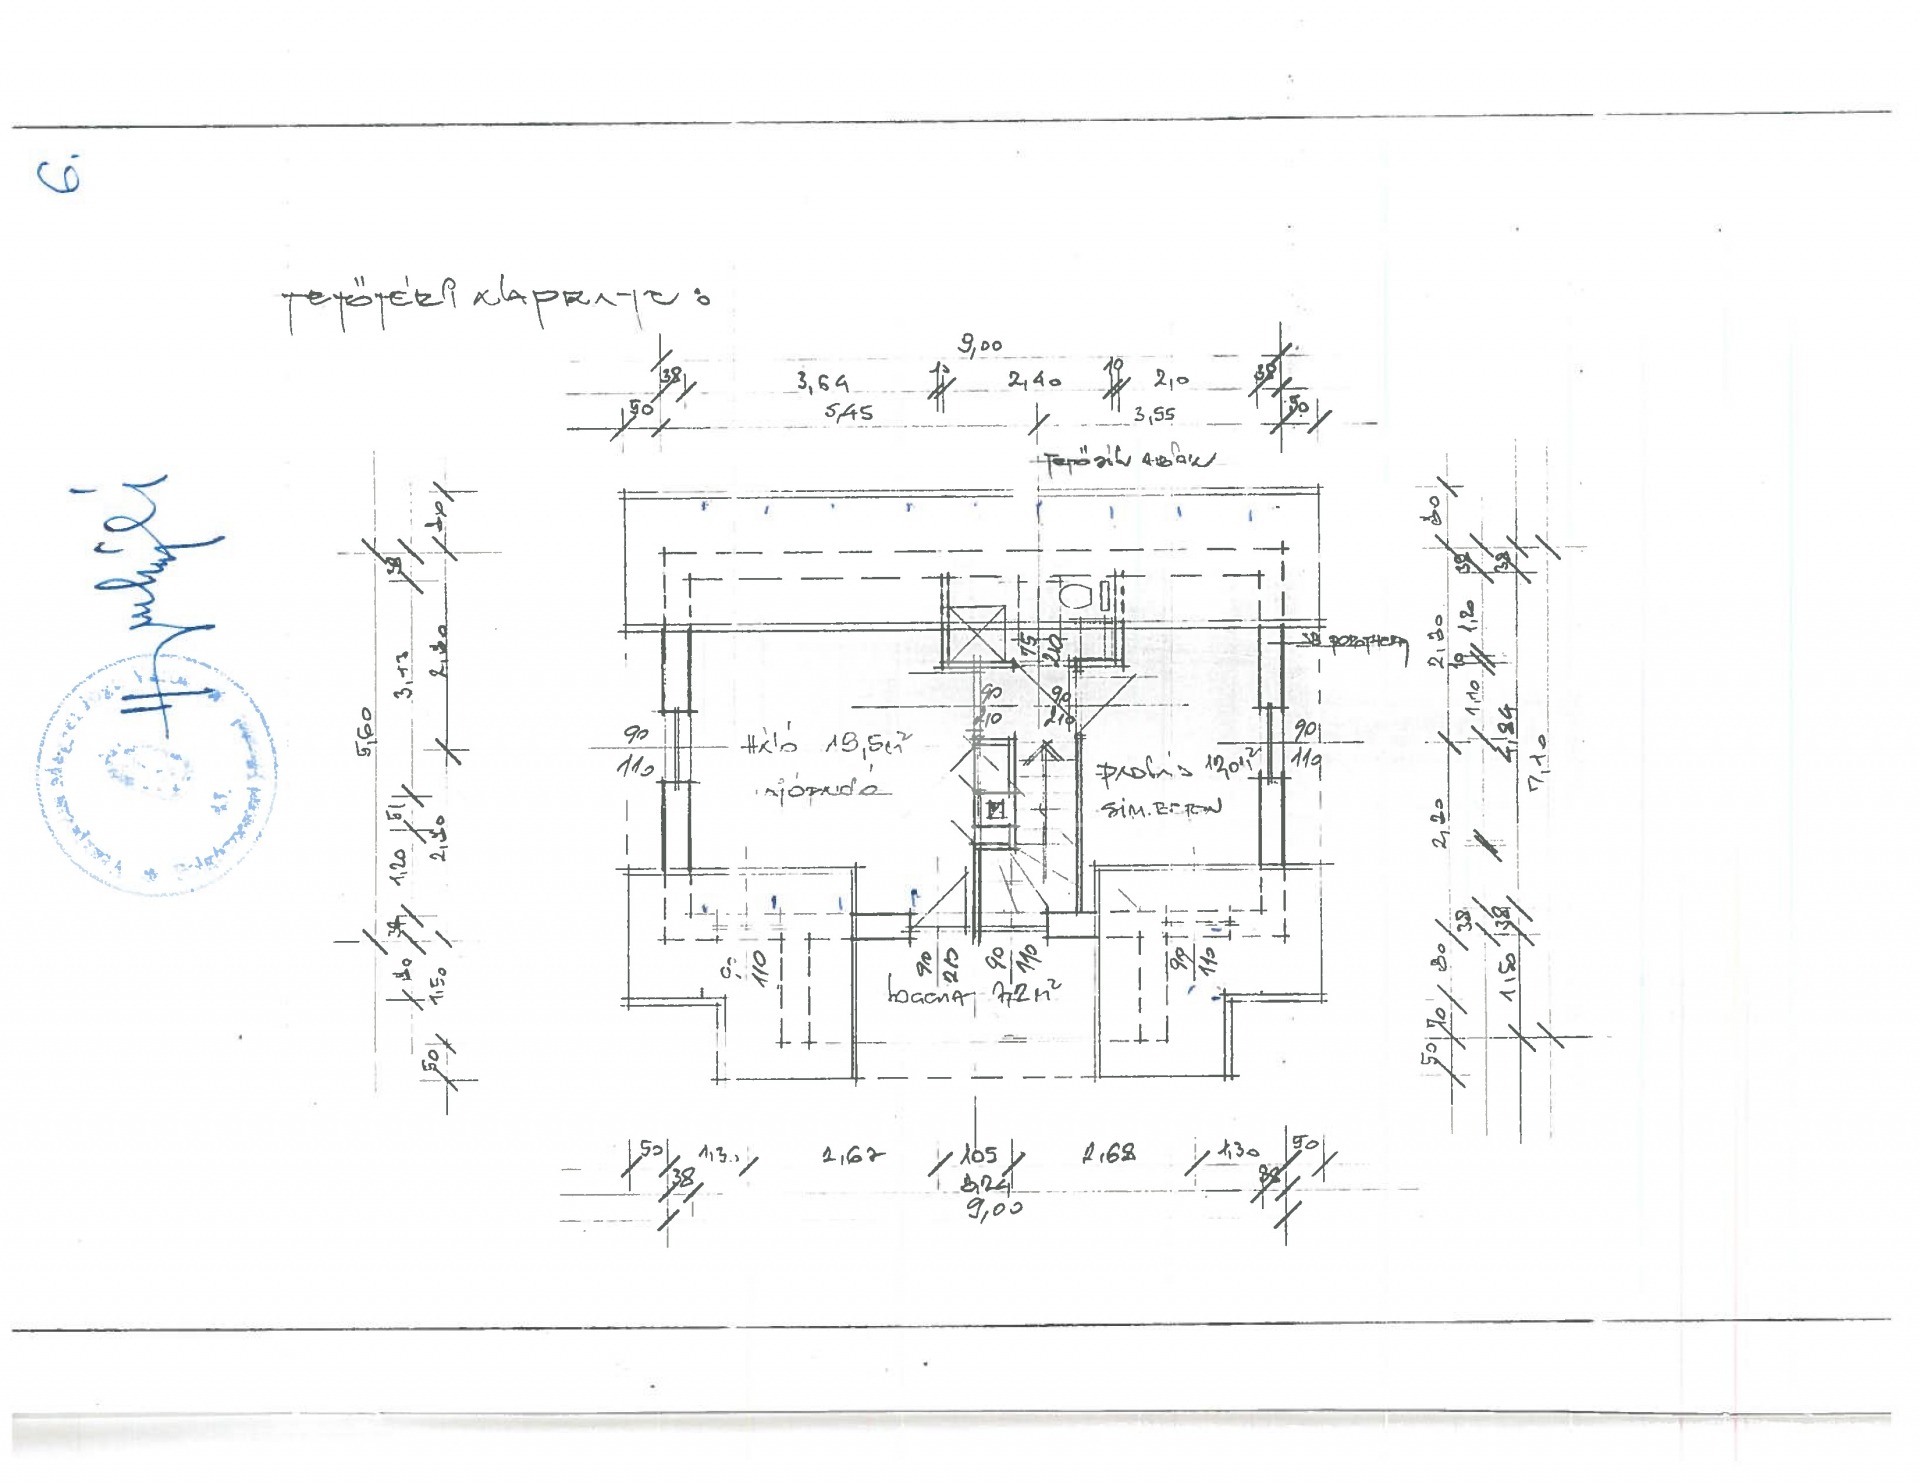 6.
TETŐTÉRI ALAPRAJZ:
9,00
38 3,64 10 2,40 10 2,0 38
50 5,45 3,55 50
TETŐSÍK ABLAK
75
210
90
210
90
210
90
110
HÁLÓ 19,5 m²
HAJÓPADLÓ
PADLÁS 12,0 m²
SIM. BETON
90
110
110
90
210
90
110
90
110
LOGGIA 7,2 m²
5,60
38
3,13
51
1,20
80
2,80
2,80
1,50
50
80
2,80
2,80
80
70
50
38
1,20
10
1,10
38
38
4,84
38
1,50
7,10
50 1,30 2,67 105 2,68 1,30 50
38 8,24 38
9,00